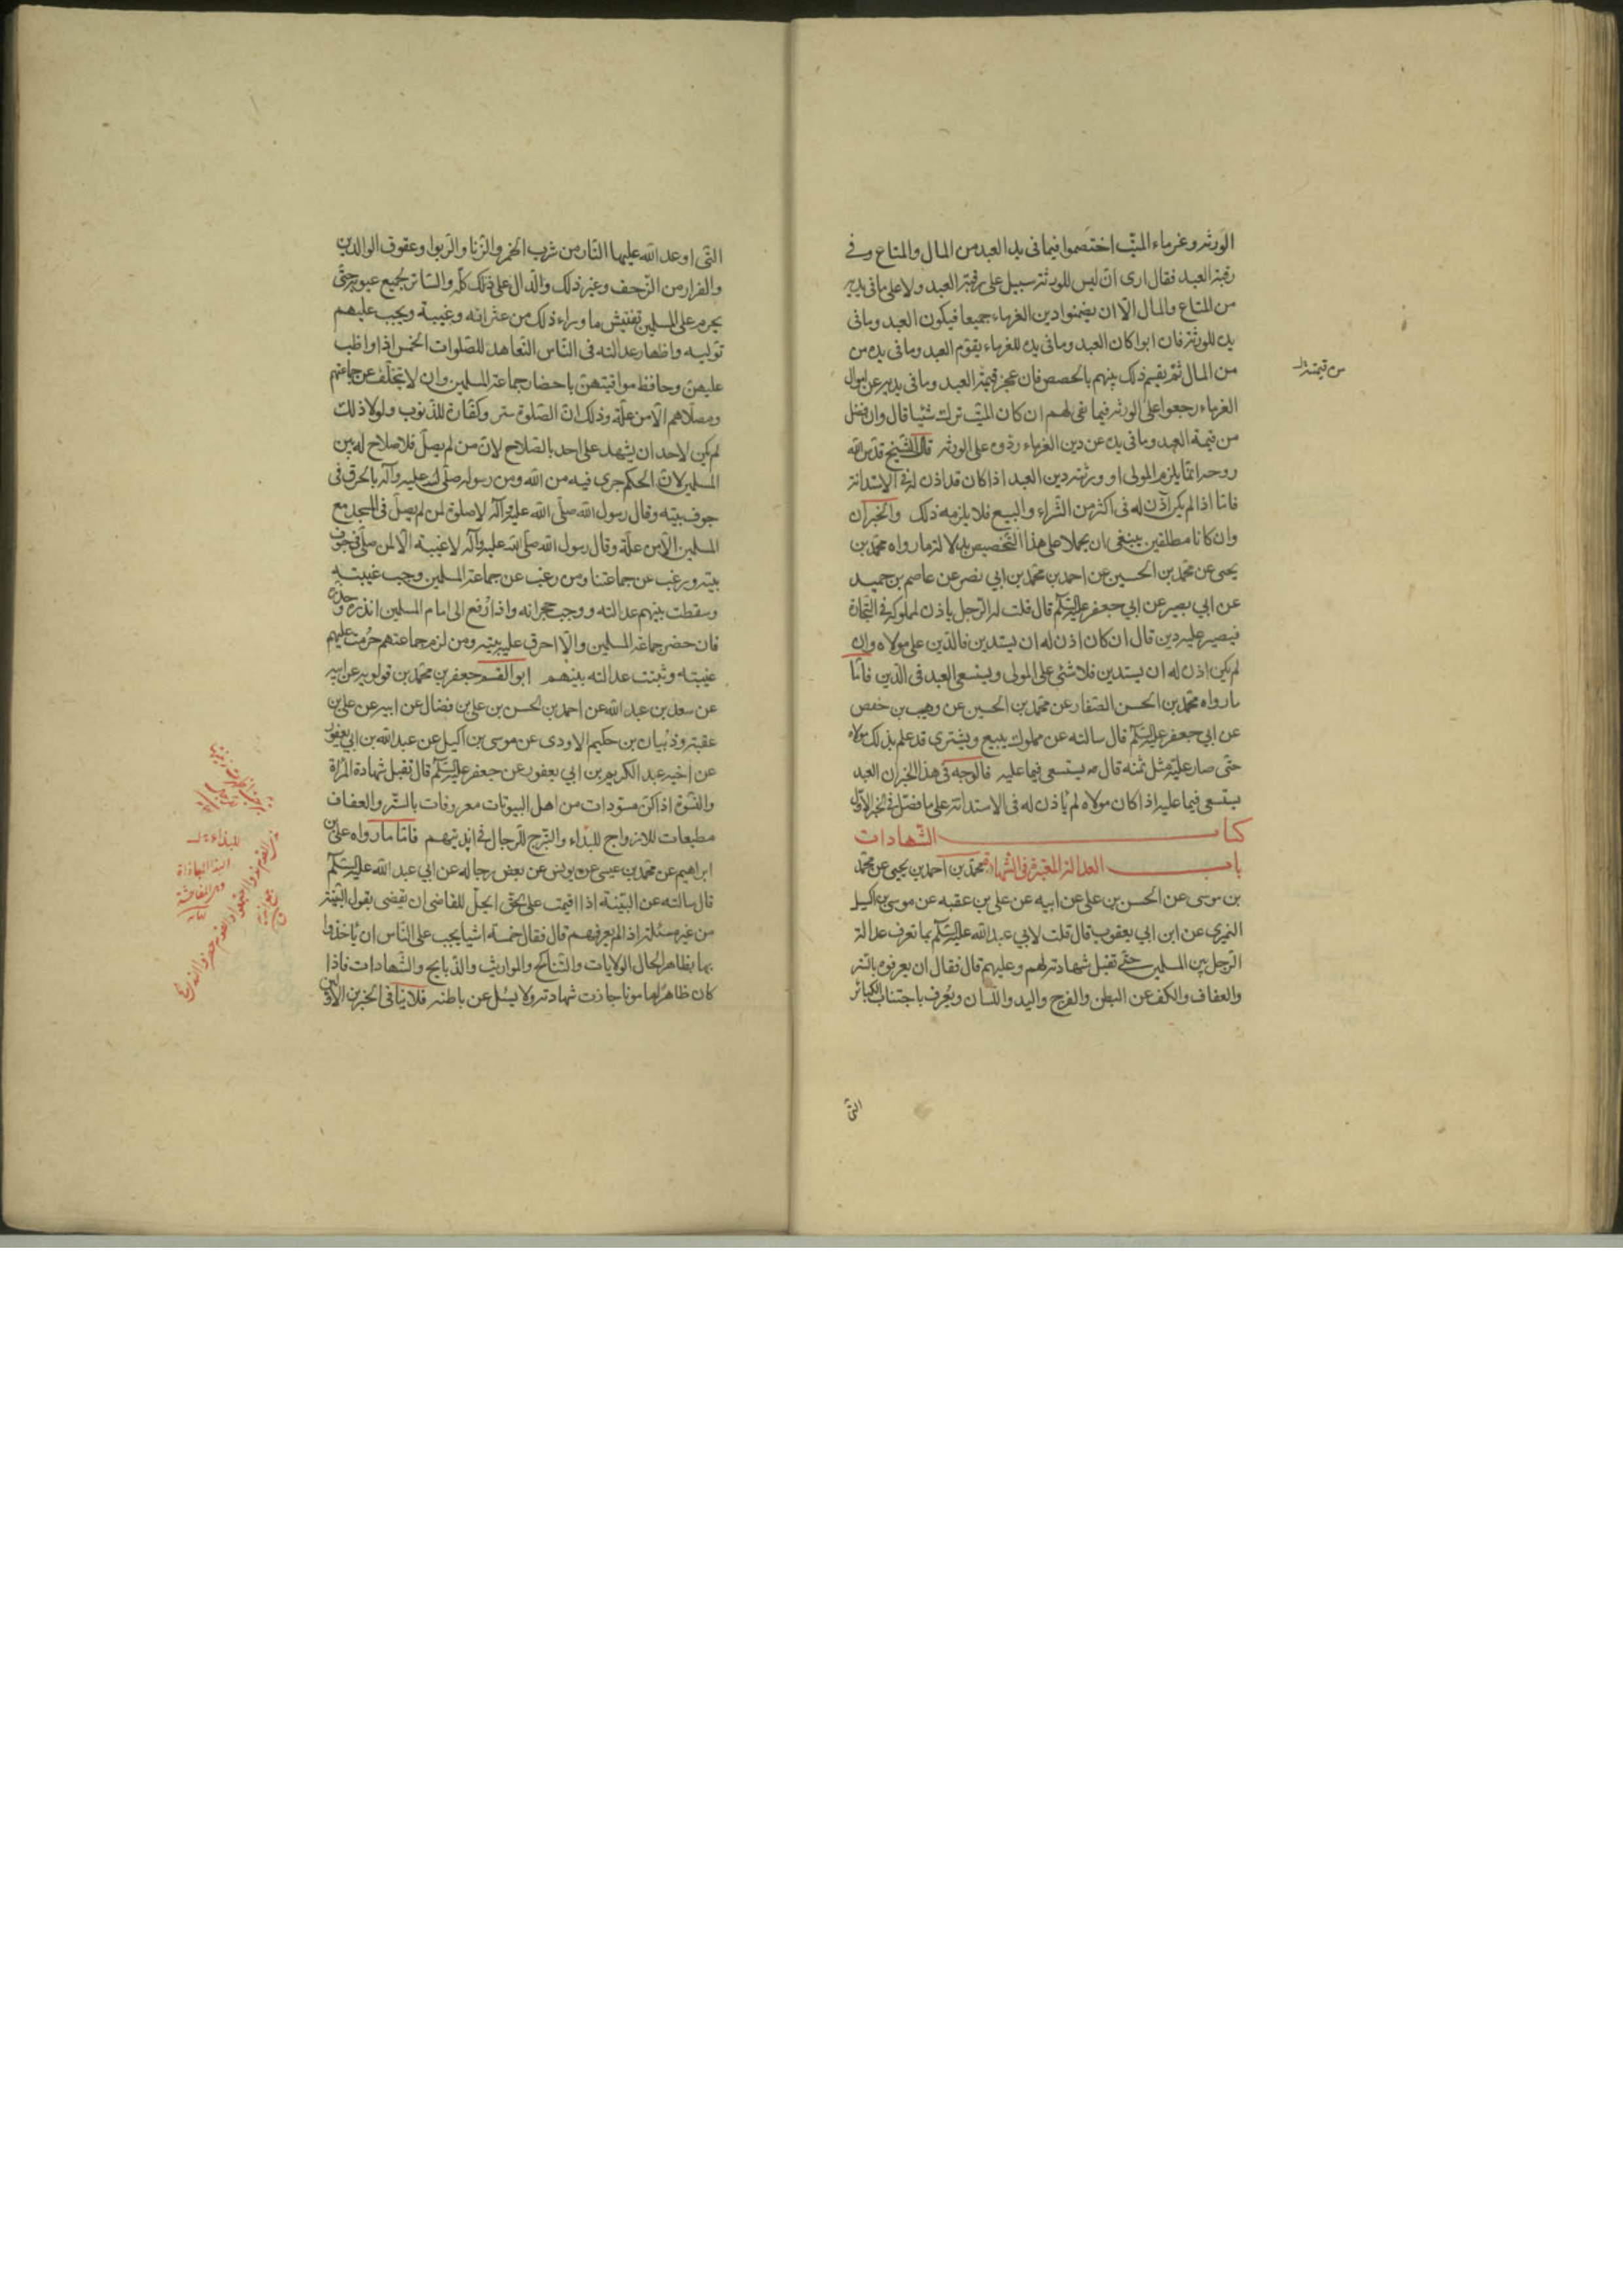 الورثه وغرماء الميّت اختصموا فيما فى يد العبد من المال والمتاع وفي
رقبة العبد فقال ارى ان ليس للورثة سبيل على رقبة العبد ولا على ما فى يديه
من المتاع والمال الّا ان يضمنوا دين الغرماء جميعا فيكون العبد وما فى
يده للورثة فان ابوا كان العبد وما فى يده للغرماء يقوّم العبد وما فى يده من
من المال ثم يقسم ذلك بينهم بالحصص فان عجز قيمة العبد وما فى يديه عن اموال
من قيمته
الغرماء رجعوا على الورثه فيما بقى لهم ان كان الميّت ترك شيئا قال وان فضل
من قيمة العبد وما فى يده عن دين الغرماء ردّوه على الورثه قال الشيخ قدس الله
روحه انما يلزم المولى او ورثته دين العبد اذا كان قد اذن له فى الاستدانة
فاما اذا لم يكن اذن له فى اكثر من الشراء والبيع فلا يلزمه ذلك والخبران
وان كانا مطلقين ينبغى ان يحملا على هذا التخصيص بدلالة ما رواه محمّد بن
يحيى عن محمّد بن الحسين عن احمد بن محمّد بن ابي نصر عن عاصم بن حميد
عن ابي بصير عن ابي جعفر عليه السلام قال قلت له الرجل ياذن لمملوكه فى التجارة
فيصير عليه دين قال ان كان اذن له ان يستدين فالدّين على مولاه وان
لم يكن اذن له ان يستدين فلا شئ على المولى ويستسعى العبد فى الدّين فامّا
ما رواه محمّد بن الحسن الصفار عن محمّد بن الحسين عن وهيب بن حفص
عن ابي جعفر عليه السلام قال سالته عن مملوك يبيع ويشترى قد علم بذلك مولاه
حتى صار عليه مثل ثمنه قال يستسعى فيما عليه فالوجه فى هذا الخبر ان العبد
يستسعى فيما عليه اذا كان مولاه لم ياذن له فى الاستدانة على ما فصّل فى الخبر الاوّل
كتاب الشهادات
باب العدالة المعتبرة فى الشهادة محمّد بن احمد بن يحيى عن محمّد
بن موسى عن الحسن بن على عن ابيه عن على بن عقبه عن موسى بن اكيل
النميرى عن ابن ابي يعفور قال قلت لابي عبد الله عليه السلام بما تعرف عدالة
الرجل بين المسلمين حتّى تقبل شهادته لهم وعليهم قال فقال ان يعرفوه بالستر
والعفاف والكف عن البطن والفرج واليد واللسان ويعرف باجتناب الكبائر
التى
التى اوعد الله عليها النار من شرب الخمر والزنا والربوا وعقوق الوالدين
والفرار من الزحف وغير ذلك والدّال على ذلك كلّه والساتر لجميع عيوبه حتى
يحرم على المسلمين تفتيش ما وراء ذلك من عثراته وغيبته ويجب عليهم
توليه واظهار عدالته فى الناس التعاهد للصّلوات الخمس اذا واظب
عليهن وحافظ مواقيتهنّ باحضار جماعة المسلمين وان لا يتخلّف عن جماعتهم
ومصلّاهم الّا من علّة وذلك انّ الصّلوة ستر وكفّارة للذنوب ولولا ذلك
لم يكن لاحد ان يشهد على احد بالصّلاح لانّ من لم يصلّ فلا صلاح له بين
المسلمين لانّ الحكم جرى فيه من الله ومن رسوله صلّى الله عليه وآله بالحرق فى
جوف بيته وقال رسول الله صلّى الله عليه وآله لا صلوة لمن لم يصلّ فى المسجد مع
المسلمين الّا من علّة وقال رسول الله صلّى الله عليه وآله لا غيبة الّا لمن صلّى فى جوف
بيته ورغب عن جماعتنا ومن رغب عن جماعة المسلمين وجب غيبته
وسقطت بينهم عدالته ووجب هجرانه واذا رُفع الى امام المسلمين انذره وحذره
فان حضر جماعة المسلمين والّا احرق عليه بيته ومن لزم جماعتهم حُرمت عليهم
غيبته وثبتت عدالته بينهم ابو القسم جعفر بن محمّد بن قولويه عن ابيه
عن سعد بن عبد الله عن احمد بن الحسن بن على بن فضال عن ابيه عن على بن
عقبة وذبيان بن حكيم الاودى عن موسى بن اكيل عن عبد الله بن ابي يعفور
عن اخيه عبد الكريم بن ابي يعفور عن جعفر عليه السلام قال تقبل شهادة المرأة
والنسوة اذا كنّ مستورات من اهل البيوتات معروفات بالستر والعفاف
مطيعات للازواج للبذاء والتبرّج للرجال فى انديتهم فامّا ما رواه على بن
ابراهيم عن محمّد بن عيسى عن يونس عن بعض رجاله عن ابي عبد الله عليه السلام
قال سالته عن البيّنة اذا اقيمت على الحق ايحلّ للقاضى ان يقضى بقول البيّنة
من غير مسئلة اذا لم يعرفهم قال فقال خمسة اشيا يجب على النّاس ان ياخذوا
بها بظاهر الحال الولايات والتناكح والمواريث والذبايح والشهادات فاذا
كان ظاهره مامونا جازت شهادته ولا يسئل عن باطنه فلا ينافى الخبرين الاوّلين